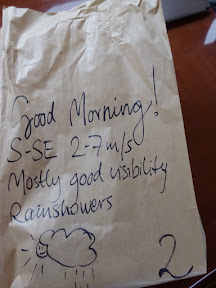 Good Morning!
S-SE 2-7 m/s
Mostly good visibility
Rainshowers
2